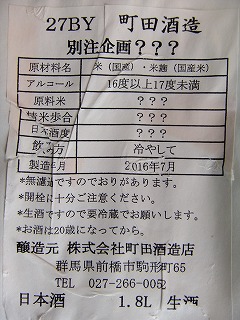 27BY 町田酒造
別注企画???
原材料名 米(国産)・米麹(国産米)
アルコール 16度以上17度未満
原料米 ???
精米歩合 ???
日本酒度 ???
飲み方 冷やして
製造年月 2016年7月
*無濾過ですのでおりがあります。
*開栓は十分ご注意ください。
*生酒ですので要冷蔵でお願します。
*お酒は20歳になってから。
醸造元 株式会社町田酒造店
群馬県前橋市駒形町65
TEL 027-266-0052
日本酒 1.8L 生酒